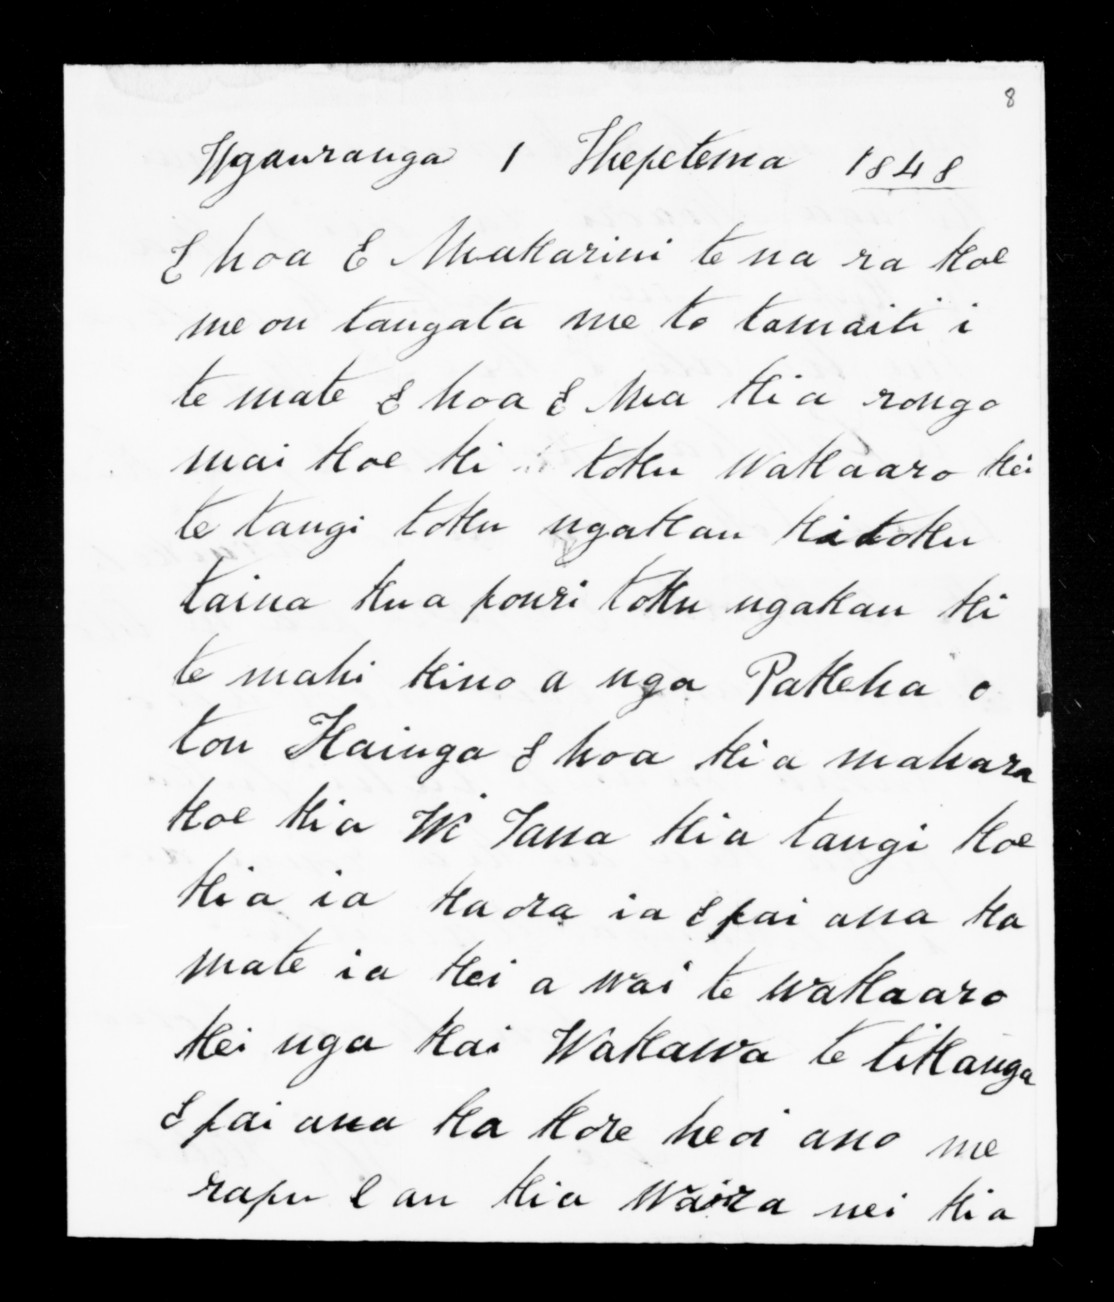 8
Ngauranga 1 Hepetema 1848
E hoa E Makarini te na ra koe
me ou tangata me to tamaiti i
te mate E hoa E Ma kia rongo
mai koe ki toku wakaaro kei
te tangi toku ngakau ki toku
taina kua pouri toku ngakau ki
te mahi kino a nga Pakeha o
tou Kainga E hoa kia mahara
koe kia Wi Tana kia tangi koe
kia ia ka ora ia E pai ana ka
mate ia kei a wai te wakaaro
kei nga kai Wakawa te tikanga
E pai ana ka kore heoi ano me
rapu e au kia waira nei kia